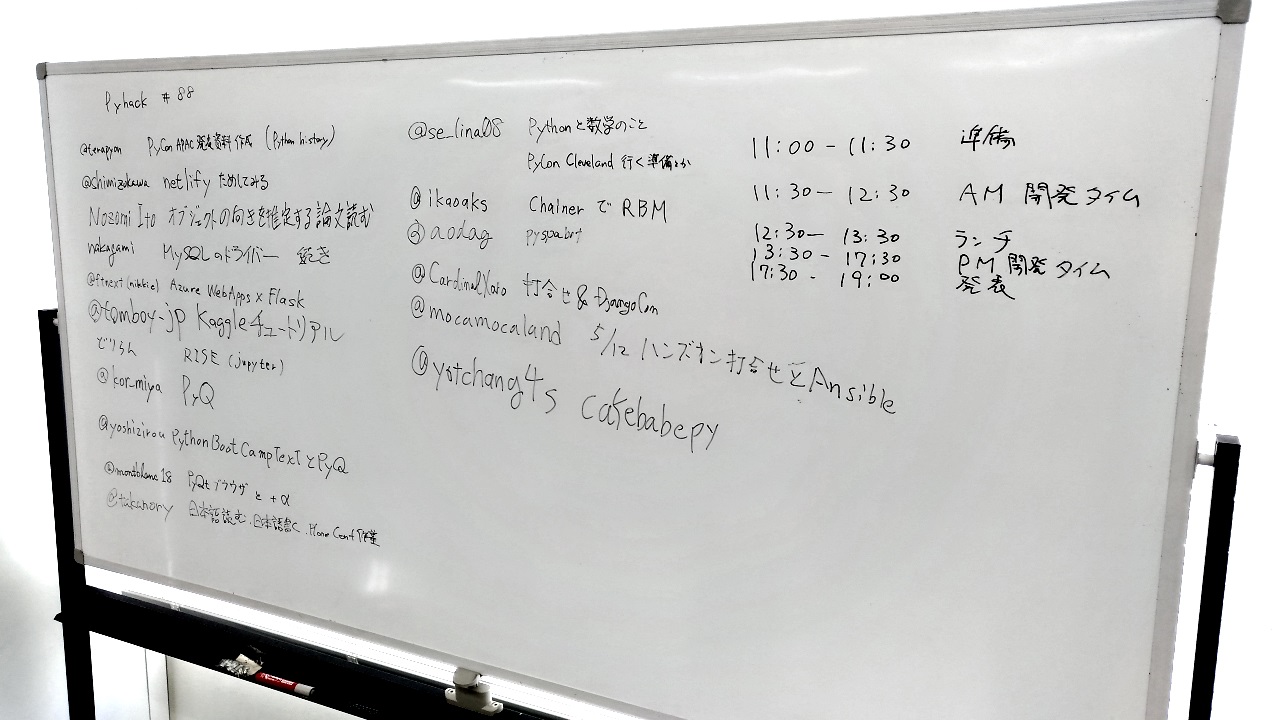 Pyhack #88
@terapyon PyCon APAC 発表資料作成 (Python history)
@shimizukawa netlify ためしてみる
Nozomi Ito オブジェクトの向きを推定する論文読む
nakagami MySQLのドライバー 続き
@ftnext (nikkie) Azure WebApps × Flask
@tomboy-jp Kaggleチュートリアル
でりらん RISE (jupyter)
@kor_miya PyQ
@yoshizirou Python Boot Camp TexT と PyQ
@montblanc18 PyQt ブラウザ と +α
@takanory 日本語読む、日本語書く、Plone Conf 作業
@se_lina08 Pythonと数学のこと
PyCon Cleveland 行く準備とか
@ikaoaks Chainer で RBM
@aodag pyspa bot
@CardinalXaro 打合せ & DjangoCon
@mocamocaland 5/12 ハンズオン打合せとAnsible
@yotchang4s cafebabepy
11:00 - 11:30 準備
11:30 - 12:30 AM 開発タイム
12:30 - 13:30 ランチ
13:30 - 17:30 PM 開発タイム
17:30 - 19:00 発表